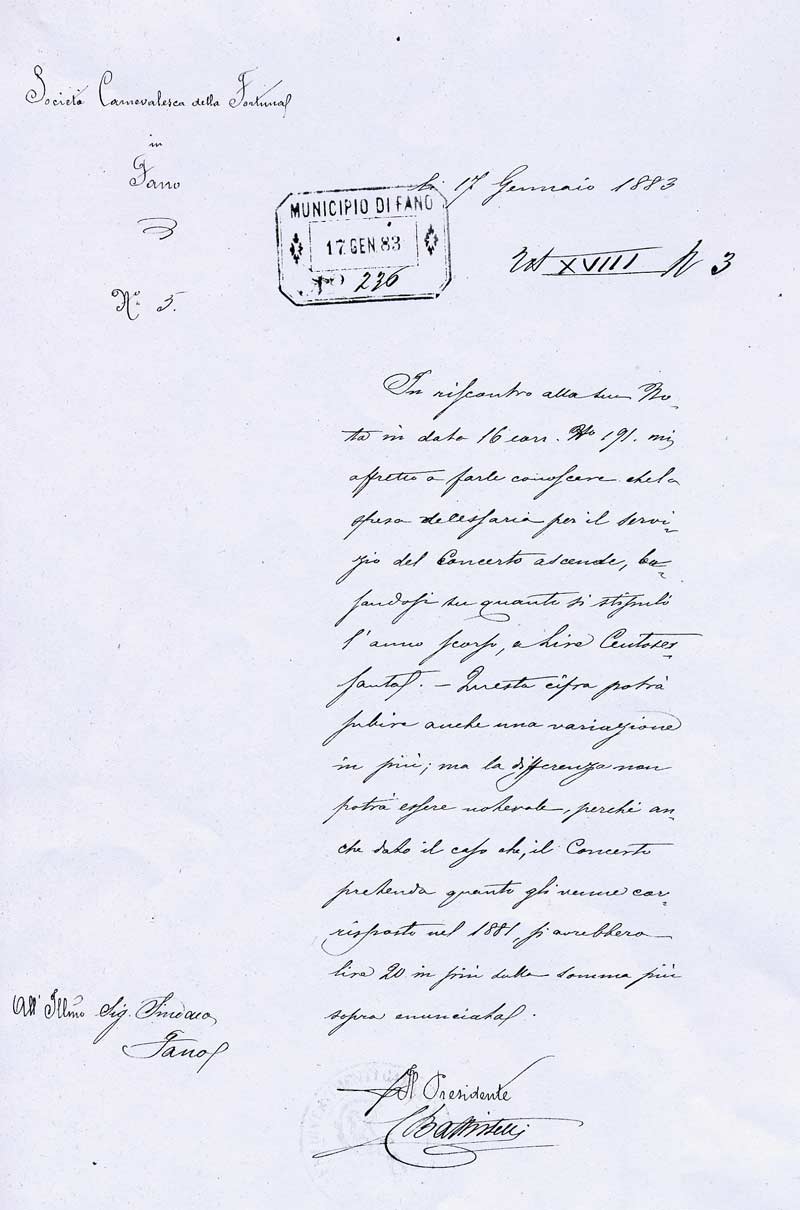 Società Carnevalesca della Fortuna
in
Fano
N.º 5.
li 17 Gennaio 1883
MUNICIPIO DI FANO
17 GEN 83
Nº 236
Tit XVIII N 3
In riscontro alla sua No-
ta in data 16 corr. Nº 191. mi
affretto a farle conoscere che la
spesa necessaria per il servi-
zio del Concerto ascende, ba-
sandosi su quanto si stipulò
l'anno scorso, a Lire Centoses-
santa. — Questa cifra potrà
subire anche una variazione
in più; ma la differenza non
potrà essere notevole, perchè an-
che dato il caso che, il Concerto
pretenda quanto gli venne cor-
risposto nel 1881, si avrebbero
lire 20 in più della somma più
sopra enunciata.
All' Illmo Sig. Sindaco
Fano
Il Presidente
Battistelli